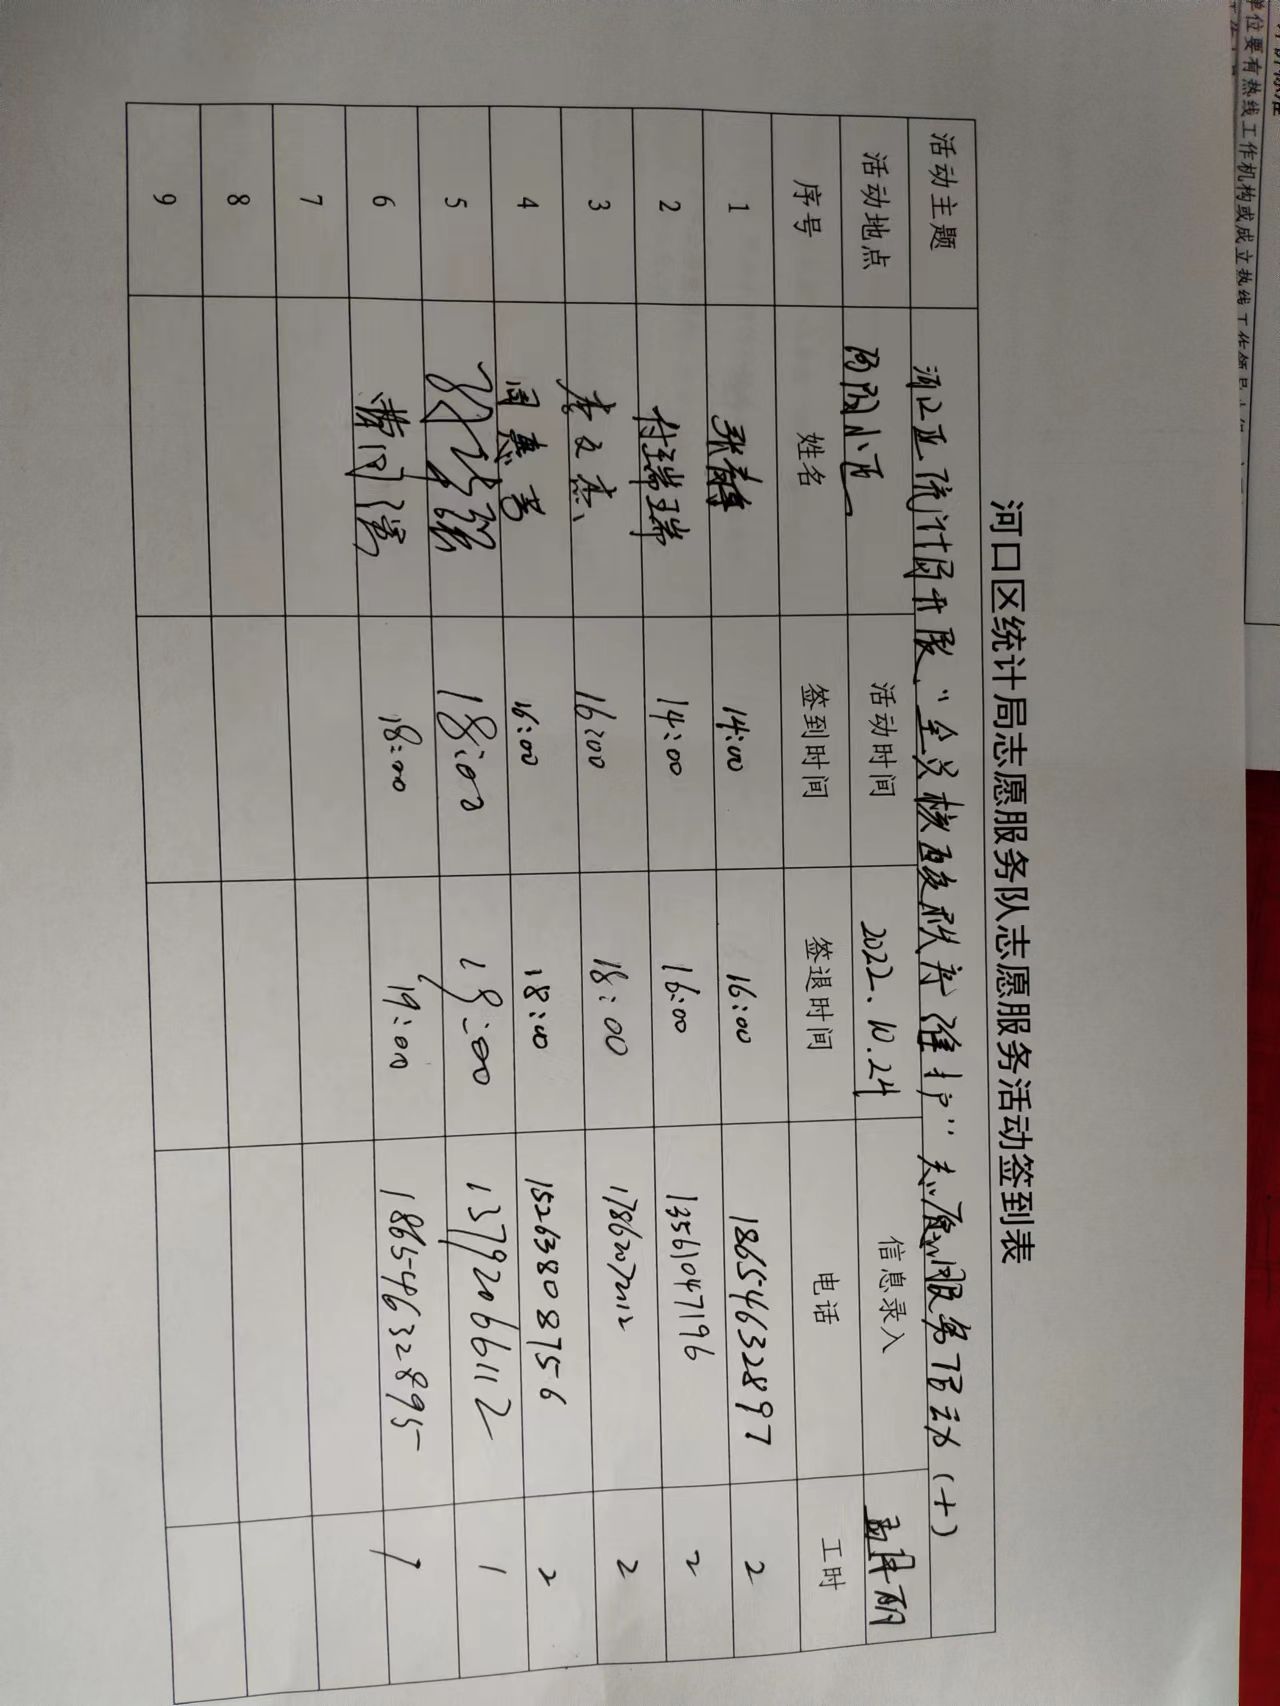 河口区统计局志愿服务队志愿服务活动签到表
活动主题 河口区统计局开展“全员核酸秩序维护”志愿服务活动(十)
活动地点 小区 活动时间 2022.10.24 信息录入
序号 姓名 签到时间 签退时间 电话 工时
1 张静 14:00 16:00 18654632897 2
2 付瑞瑞 14:00 16:00 13561047196 2
3 李文杰 16:00 18:00 17862072112 2
4 周惠芳 16:00 18:00 15263808756 2
5 18:00 19:00 13792066112 1
6 18:00 19:00 18654632895 1
7
8
9
单位要有热线工作机构或成立热线工作领导小组